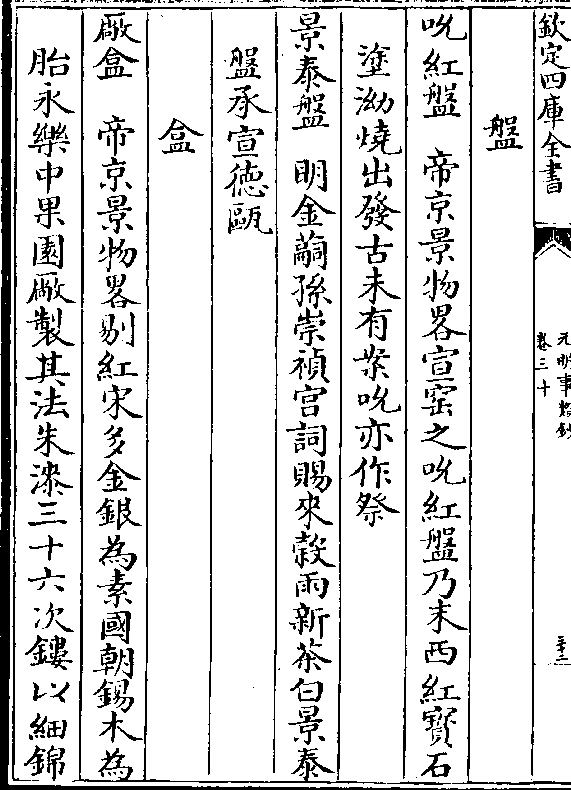 欽定四庫全書
元明事類鈔
卷三十
三十二
盤
吮紅盤　帝京景物畧宣窑之吮紅盤乃末西紅寳石
塗泑燒出發古未有案吮亦作祭
景泰盤　明金嗣孫崇禎宫詞賜來穀雨新茶白景泰
盤承宣徳甌
盒
廠盒　帝京景物畧剔紅宋多金銀為素國朝錫木為
胎永樂中果園廠製其法朱漆三十六次鏤以細錦